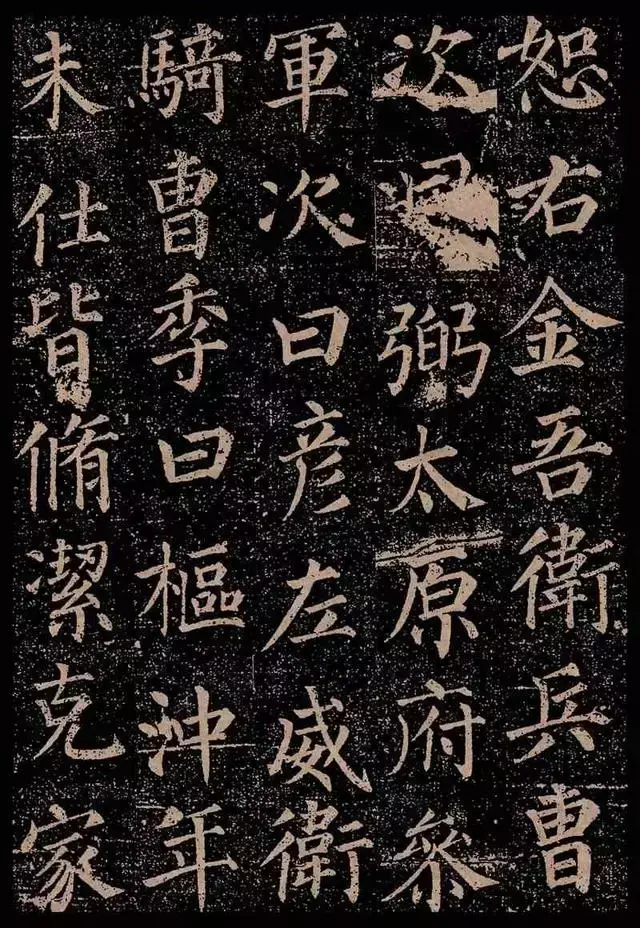 恕右金吾衛兵曹
次弼太原府參
軍次曰彦左威衛
騎曹季曰樞沖年
未仕皆脩潔克家